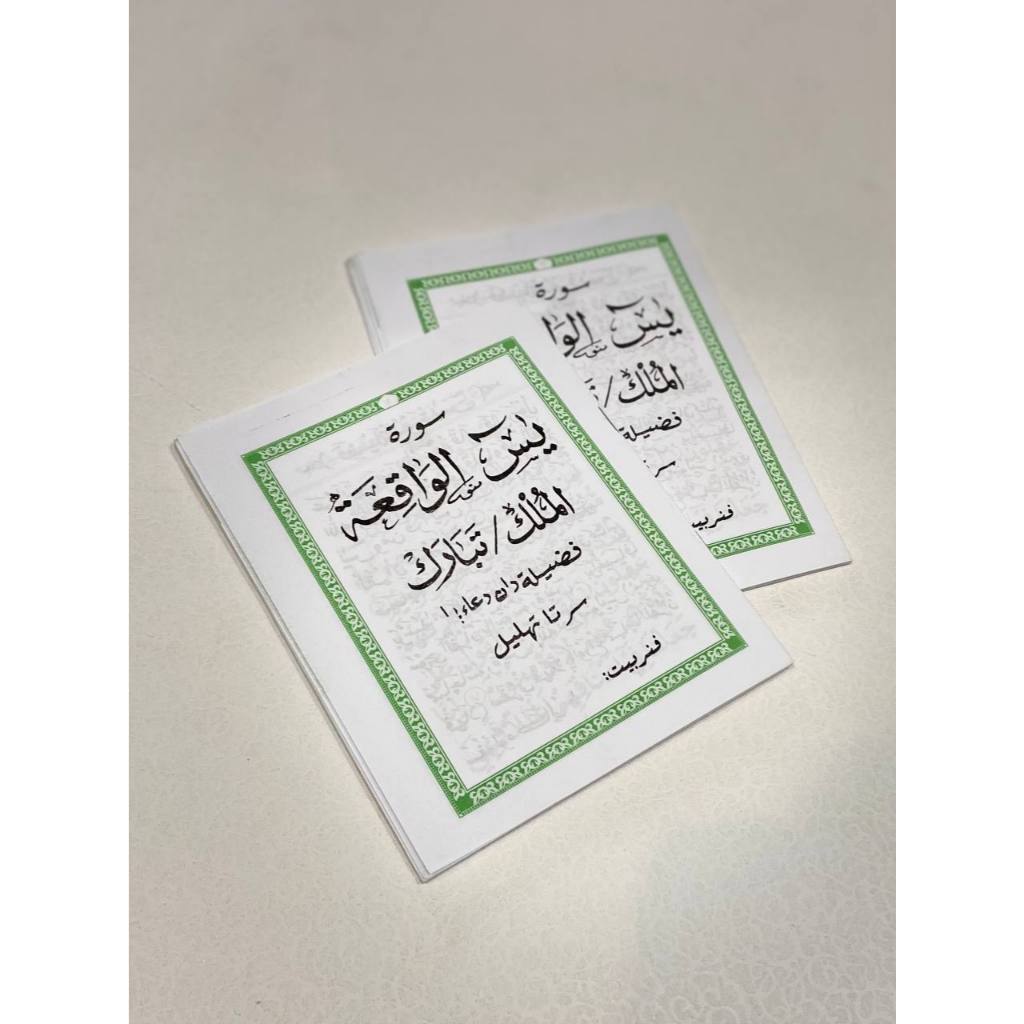 سورة
يسٓ الوَاقِعَةُ
المُلْك / تَبَارَك
فضيلة دان دعاء٢
سرتا تهليل
ففربيت:
سورة
يسٓ
المُلْك /
فضيلة